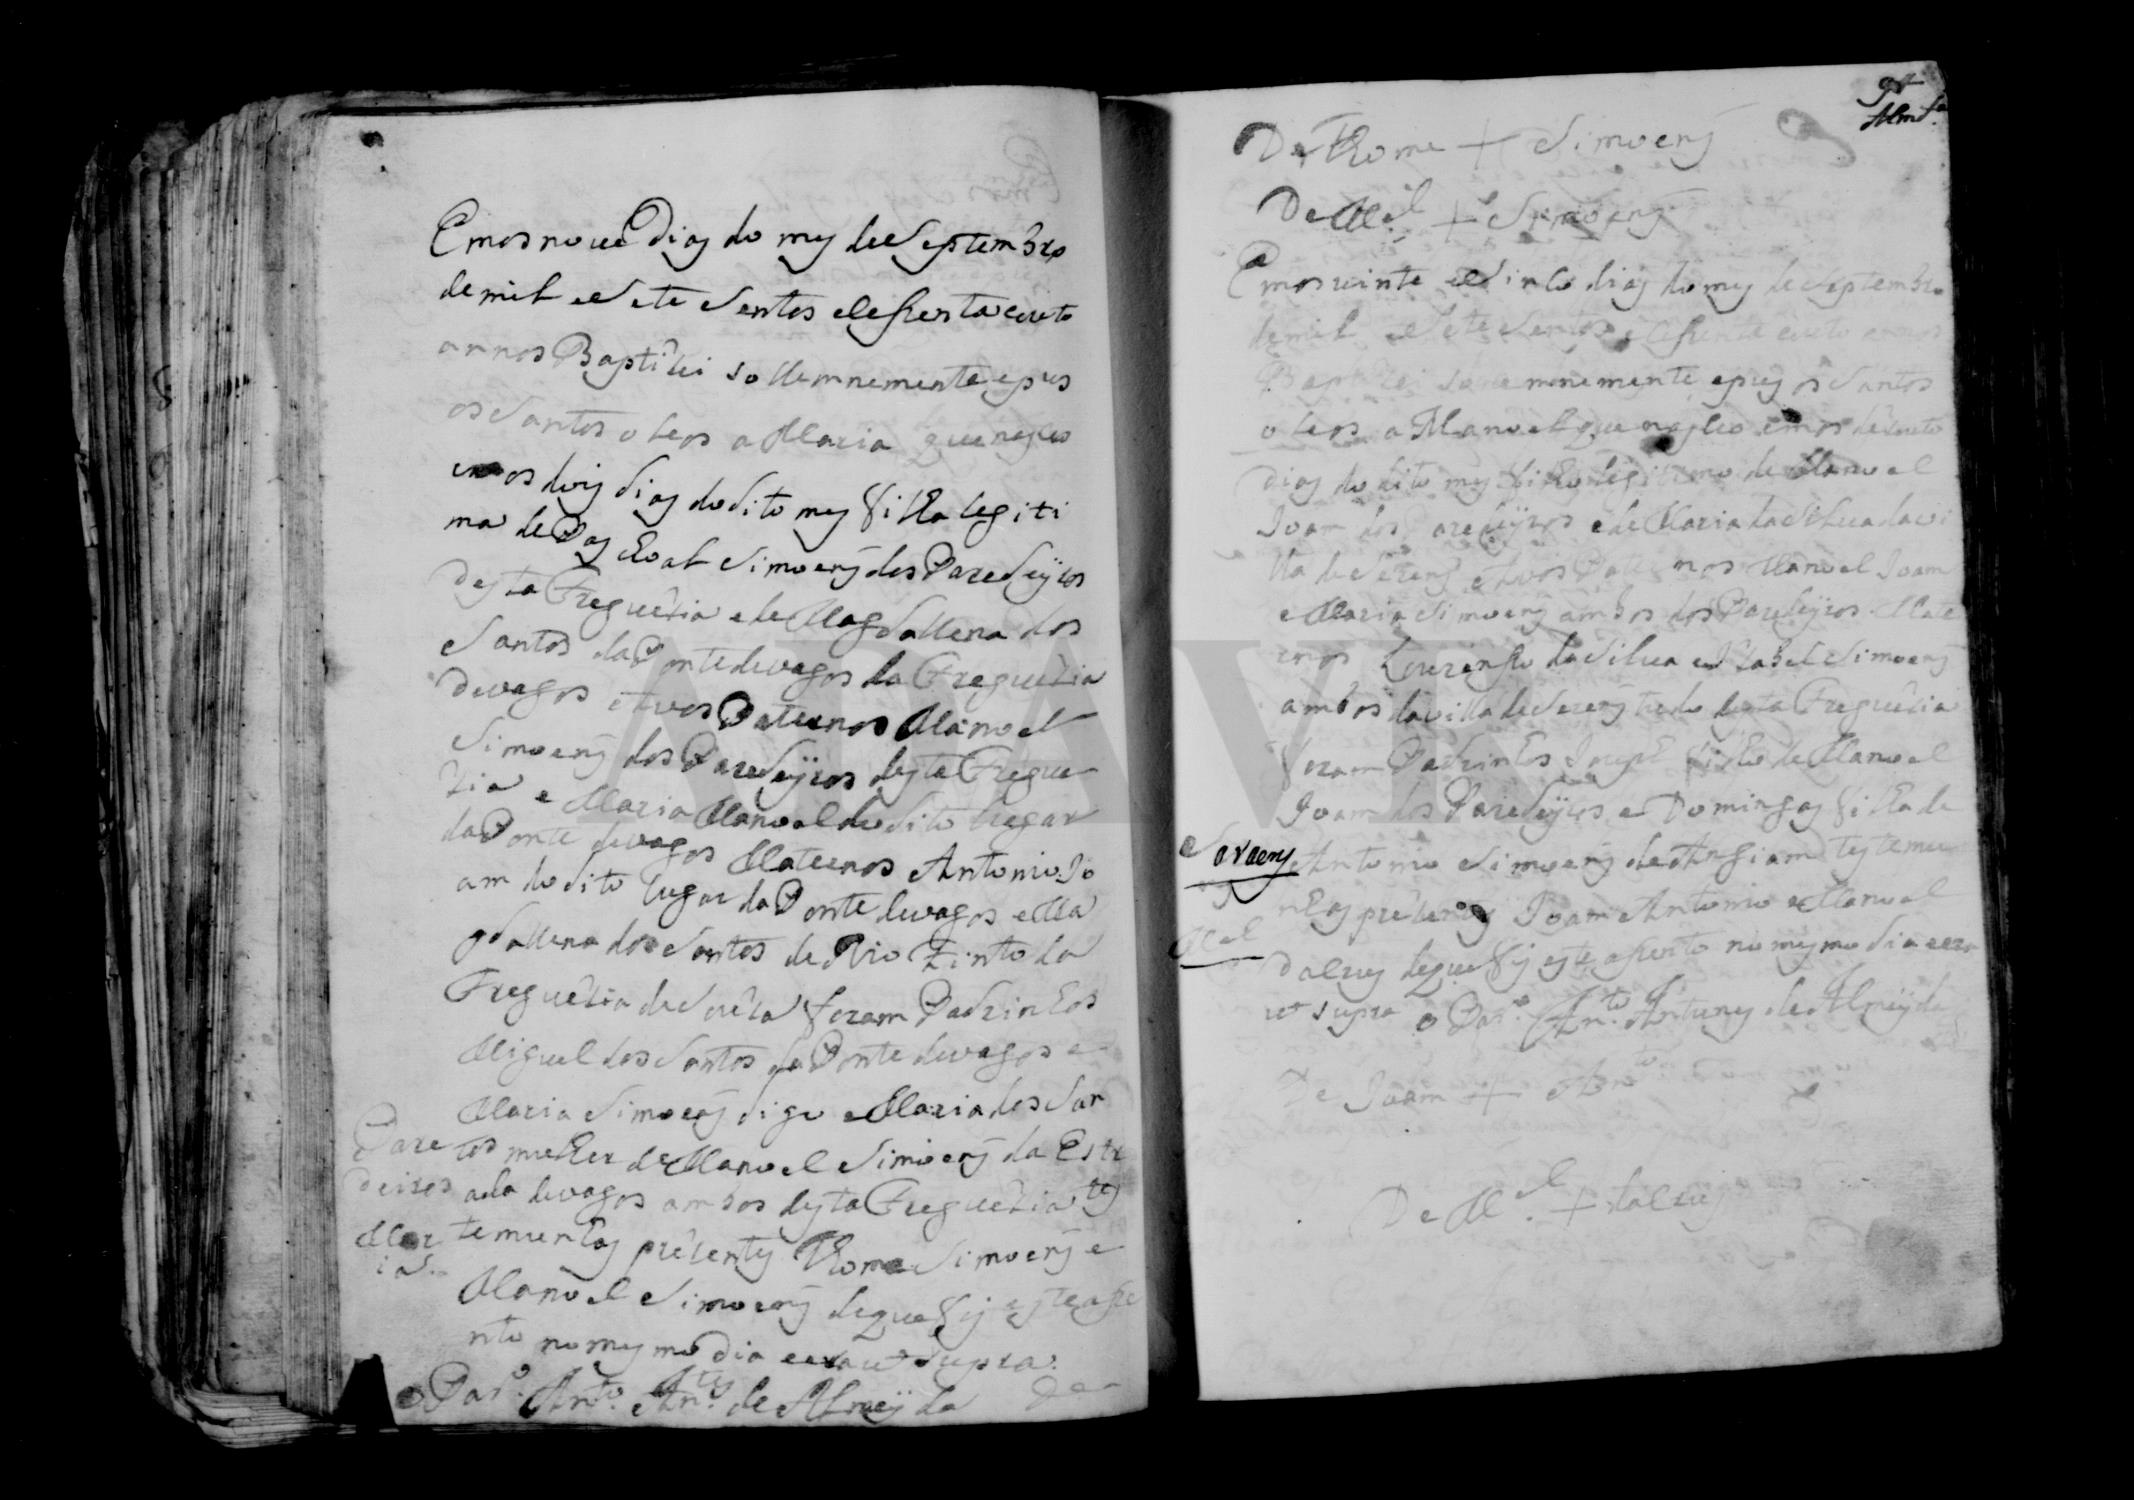 Em os noue Dias do mes de Septembro
de mil e Sete Sentos e sesenta e outo
annos Baptizei sollemnemente e pus
os Santos oleos a Maria que nasceo
em os dois dias do dito mes filha legiti
ma de Pascoal Simoens dos Paredeijros
desta Freguezia e de Magdallena dos
Santos da Ponte de vagos da Freguezia
de vagos Avos Paternos Manoel
Simoens dos Paredeijros desta Fregue
zia e Maria Manoel do dito lugar
da Ponte de vagos Maternos Antonio Jo
am do dito lugar da Ponte de vagos e Ma
gdallena dos Santos de Rio Tinto da
Freguezia de Soza foram Padrinhos
Miguel dos Santos da Ponte de vagos e
Maria Simoens digo Maria dos San
tos mulher de Manoel Simoens da Estr
ada de vagos ambos desta Freguezia tes
temunhas prezentes Thome Simoens e
Manoel Simoens de que fis este asse
nto no mesmo dia e era ut supra
o Par.º Ant.º An.tes de Almeijda De
Pare
deiros
Mar
ia
91
Almd.ª
De Thome + Simoens
De M.el + Simoens
Em os uinte e Sinco dias do mes de Septembro
de mil e Sete Sentos e sesenta e outo annos
Baptizei solemnemente e pus os Santos
oleos a Manoel que nasceo em os dezouto
dias do dito mes filho legitimo de Manoel
Joam dos Paredeijros e de Maria da Silua da vi
lla de Serens Avos Paternos Manoel Joam
e Maria Simoens ambos dos Paredeijros Mate
rnos Lourenso da Silua e Izabel Simoens
ambos da villa de Serens tudo desta Freguezia
foram Padrinhos Joseph filho de Manoel
Joam dos Paredeijros e Domingas filha de
Antonio Simoens de Angiam testemu
nhas prezentes Joam Antonio e Manoel
Dalrey de que fis este asento no mesmo dia e era
ut supra o Par.º An.to Antunes de Almeijda
Saraens
M.el
De Joam + An.to
De M.el + dalrey
ADAVR